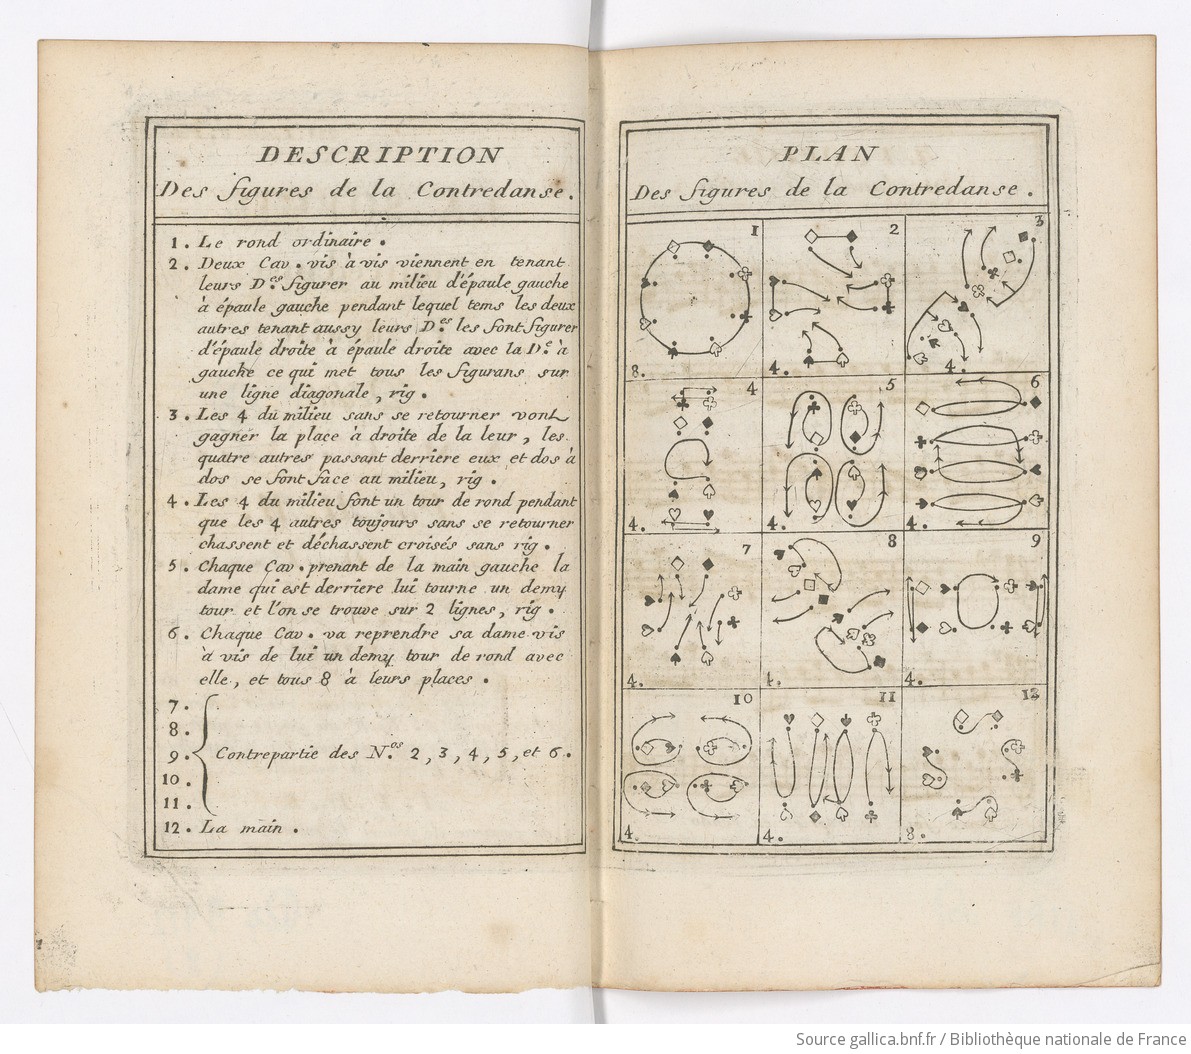 DESCRIPTION
Des figures de la Contredanse.
1. Le rond ordinaire.
2. Deux Cav. vis à vis viennent en tenant
leurs D.es figurer au milieu d'épaule gauche
à épaule gauche pendant lequel tems les deux
autres tenant aussy leurs D.es les font figurer
d'épaule droite à épaule droite avec la D.e à
gauche ce qui met tous les figurans sur
une ligne diagonale, rig.
3. Les 4 du milieu sans se retourner vont
gagner la place à droite de la leur, les
quatre autres passant derriere eux et dos à
dos se font face au milieu, rig.
4. Les 4 du milieu font un tour de rond pendant
que les 4 autres toujours sans se retourner
chassent et déchassent croisés sans rig.
5. Chaque Cav. prenant de la main gauche la
dame qui est derriere lui tourne un demy
tour et l'on se trouve sur 2 lignes, rig.
6. Chaque Cav. va reprendre sa dame vis
à vis de lui un demy tour de rond avec
elle, et tous 8 à leurs places.
7.
8.
9. Contrepartie des N.os 2, 3, 4, 5, et 6.
10.
11.
12. La main.
PLAN
Des figures de la Contredanse.
1 2 3
8. 4. 4.
4 5 6
4. 4. 4.
7 8 9
4. 4. 4.
10 11 12
4. 4. 8.
Source gallica.bnf.fr / Bibliothèque nationale de France